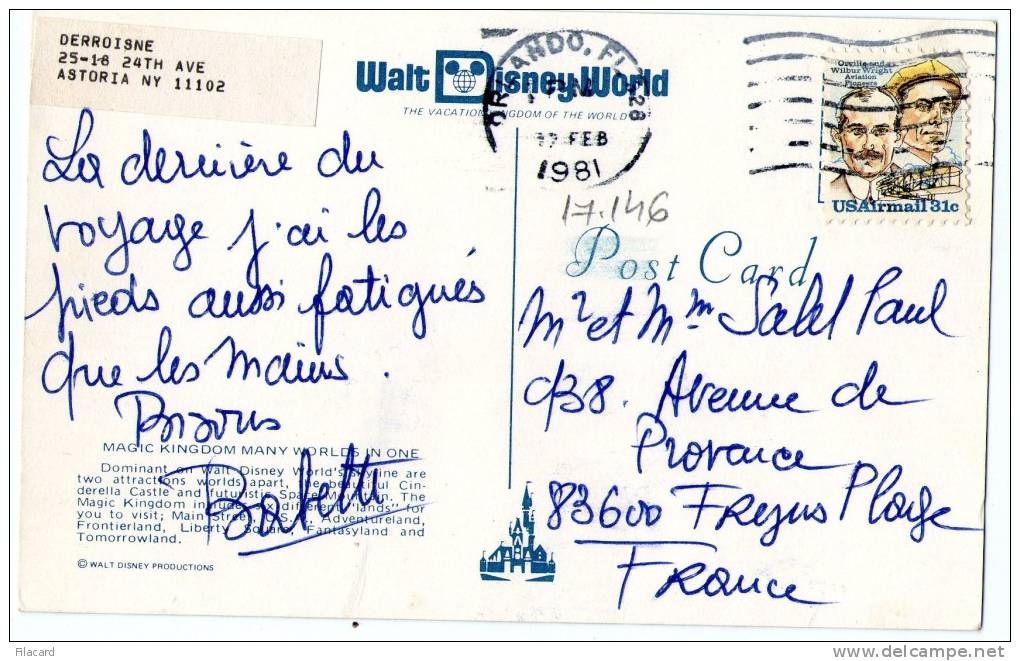 DERROISNE
25-18 24TH AVE
ASTORIA NY 11102
Walt Disney World
THE VACATION KINGDOM OF THE WORLD
ORLANDO, FL 328
PM
FEB
1981
Orville and
Wilbur Wright
Aviation
Pioneers
USAirmail 31c
17.146
Post Card
La dernière du
voyage j'ai les
pieds aussi fatigués
que les mains.
Bisous
Babette
Mr et Mm Paul
Avenue de
Provence
83600 Frejus Plage
France
MAGIC KINGDOM MANY WORLDS IN ONE
Dominant on Walt Disney World's skyline are
two attractions worlds apart, the beautiful Cin-
derella Castle and futuristic Space Mountain. The
Magic Kingdom includes six different 'lands' for
you to visit; Main Street, U.S.A., Adventureland,
Frontierland, Liberty Square, Fantasyland and
Tomorrowland.
© WALT DISNEY PRODUCTIONS
Filacard
delcampe.net